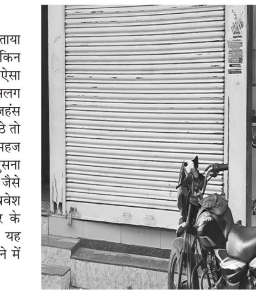 ताया
किन
ऐसा
लग
हंस
ठे तो
महज
सना
जैसे
वेश
र के
यह
ने में